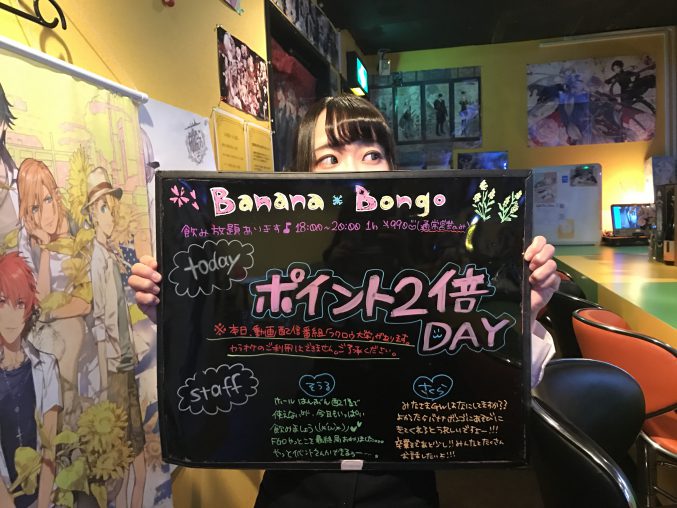 Banana × Bongo
飲み放題あります♪ 18:00~20:00 1h ¥990 (通常営業のみ
today
ポイント2倍
DAY
※本日、動画配信番組「ラクロウ大学」があります。
カラオケのご利用はできません。ご了承ください。
staff
てうる
ホールはんぶん配信で
使えないけど、今日もいっぱい
飲みましょう
FGOやっとこさ最終局
やっとイベントさんかできるぅーー。
さくら
みなさまGWはなにしてますか??
よかったらバナナボンゴにあそびに
きてくれるとうれしいですー!!!
卒業まであと少し!!みんなとたくさん
会話したいよ!!!